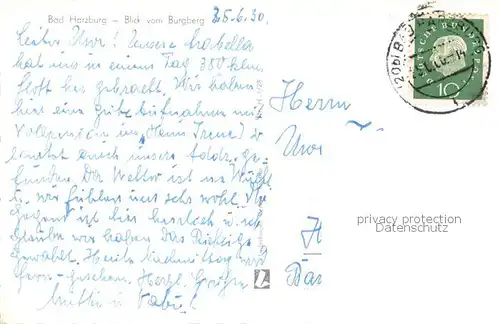 Bad Harzburg – Blick vom Burgberg 25.6.30.
Lieber Uwe! Unsere Isabella
hat uns in einem Tag 350 klm
flott her gebracht. Wir haben
hier eine gute Aufnahme mit
Vollpension im "Haus Irene"
auch unsere
funden. Das Wetter ist
u. wir fühlen uns sehr wohl. Die
Gegend ist hier herrlich u. ich
glaube wir haben das Richtige
gewählt. Heute Nachmittag wird
fern-gesehen. Herzl. Grüße
Mutti u. Vati
Herrn
Uwe
H
Bar
DEUTSCHE BUNDESPOST
10
(20b) BAD HARZBURG
privacy protection
Datenschutz